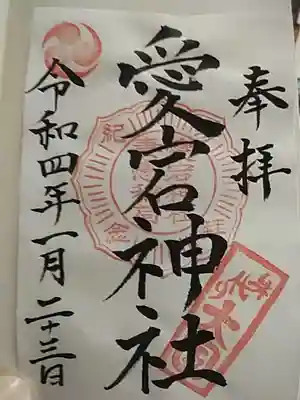 奉拝
愛宕神社
令和四年一月二十三日